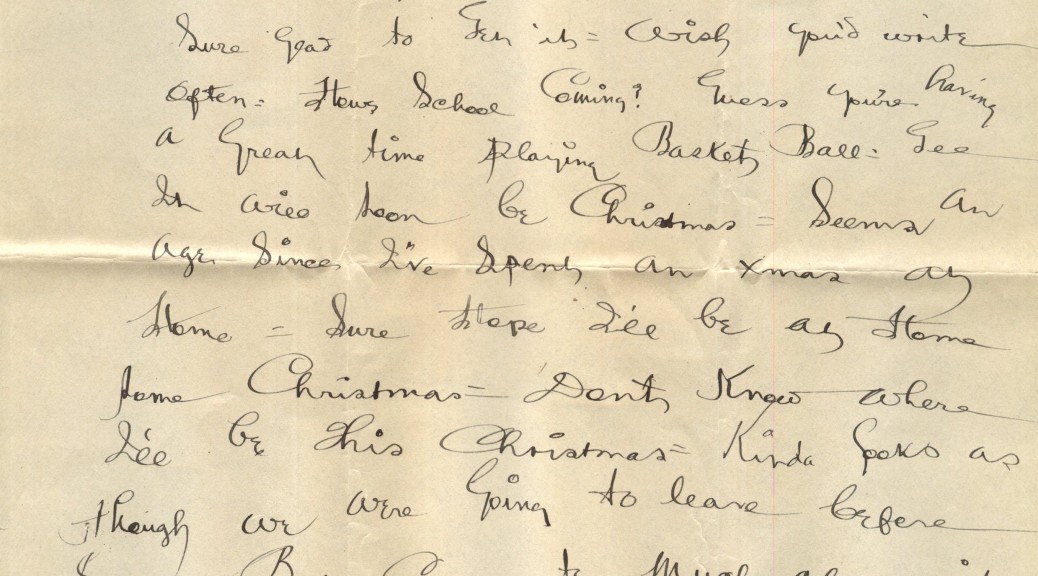 Sure Glad to Get it = Wish you'd write
often = Hows School Coming? Guess you're having
a Great time playing Basket Ball = Gee
It will soon be Christmas = Seems an
age since I've spent an Xmas at
Home = Sure Hope I'll be at Home
some Christmas = Don't Know where
I'll be this Christmas = Kinda looks as
though we were Going to leave before